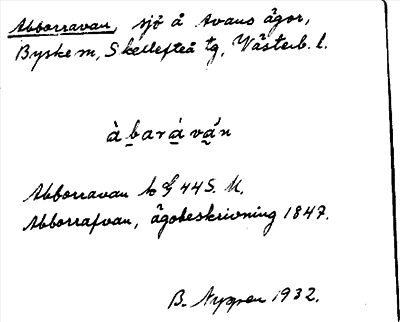 Abborravan, sjö å Avans ägor,
Byske m, Skellefteå tg, Västerb. l.
àbarávǻn
Abborravan 44 S. U.
Abborrafvan, ägobeskrivning 1847.
B. Nygren 1932.